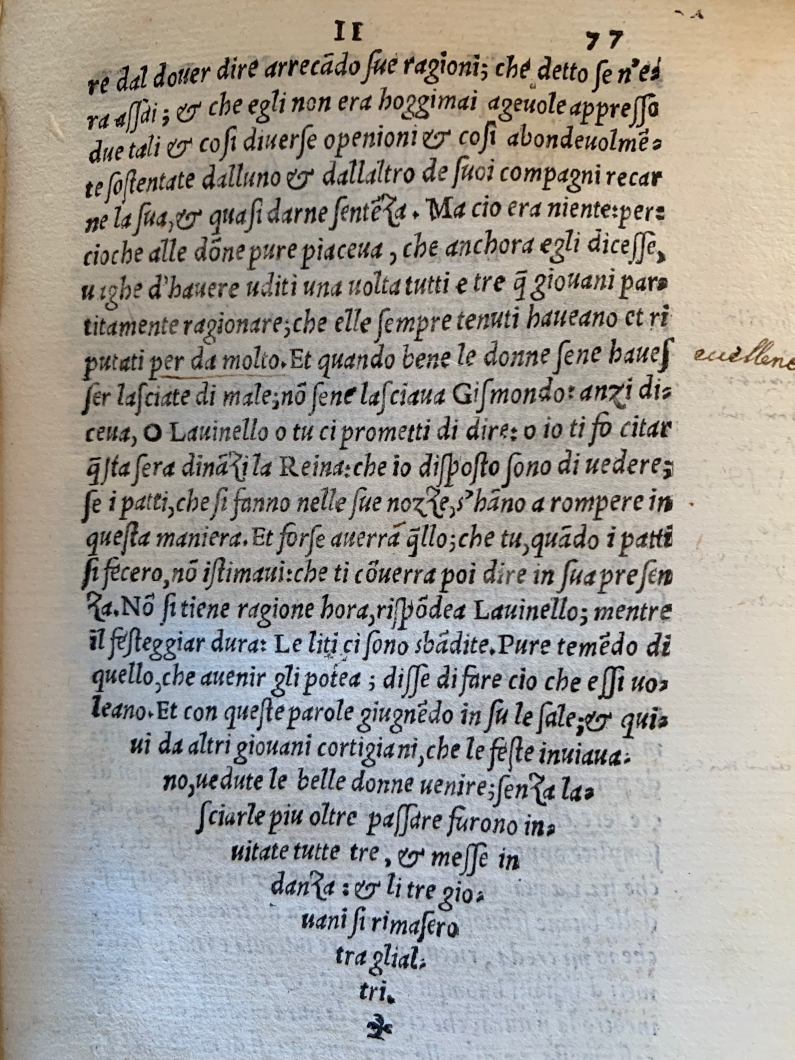 II 77
re dal douer dire arrecãdo ſue ragioni; che detto ſe n'e⸗
ra aſſai; & che egli non era hoggimai ageuole appreſſo
due tali & coſi diuerſe openioni & coſi abondeuolmẽ⸗
te ſoſtentate dalluno & dallaltro de ſuoi compagni recar
ne la ſua, & quaſi darne ſentẽza. Ma cio era niente: per⸗
cioche alle dõne pure piaceua, che anchora egli diceſſe,
uaghe d'hauere uditi una uolta tutti e tre q̃ giouani par⸗
titamente ragionare; che elle ſempre tenuti haueano et ri
putati per da molto. Et quando bene le donne ſene haueſ
ſer laſciate di male; nõ ſene laſciaua Giſmondo: anzi di⸗
ceua, O Lauinello o tu ci prometti di dire: o io ti fo citar
q̃ſta ſera dinãzi la Reina: che io diſpoſto ſono di uedere;
ſe i patti, che ſi fanno nelle ſue nozze, s'hãno a rompere in
queſta maniera. Et forſe auerra q̃llo; che tu, quãdo i patti
ſi fecero, nõ iſtimaui: che ti cõuerra poi dire in ſua preſen
za. Nõ ſi tiene ragione hora, riſpõdea Lauinello; mentre
il feſteggiar dura: Le liti ci ſono sbãdite. Pure temẽdo di
quello, che auenir gli potea; diſſe di fare cio che eſſi uo⸗
leano. Et con queſte parole giugnẽdo in ſu le ſale; & qui⸗
ui da altri giouani cortigiani, che le feſte inuiaua⸗
no, uedute le belle donne uenire; ſenza la⸗
ſciarle piu oltre paſſare furono in⸗
uitate tutte tre, & meſſe in
danza: & li tre gio⸗
uani ſi rimaſero
tra glial⸗
tri.